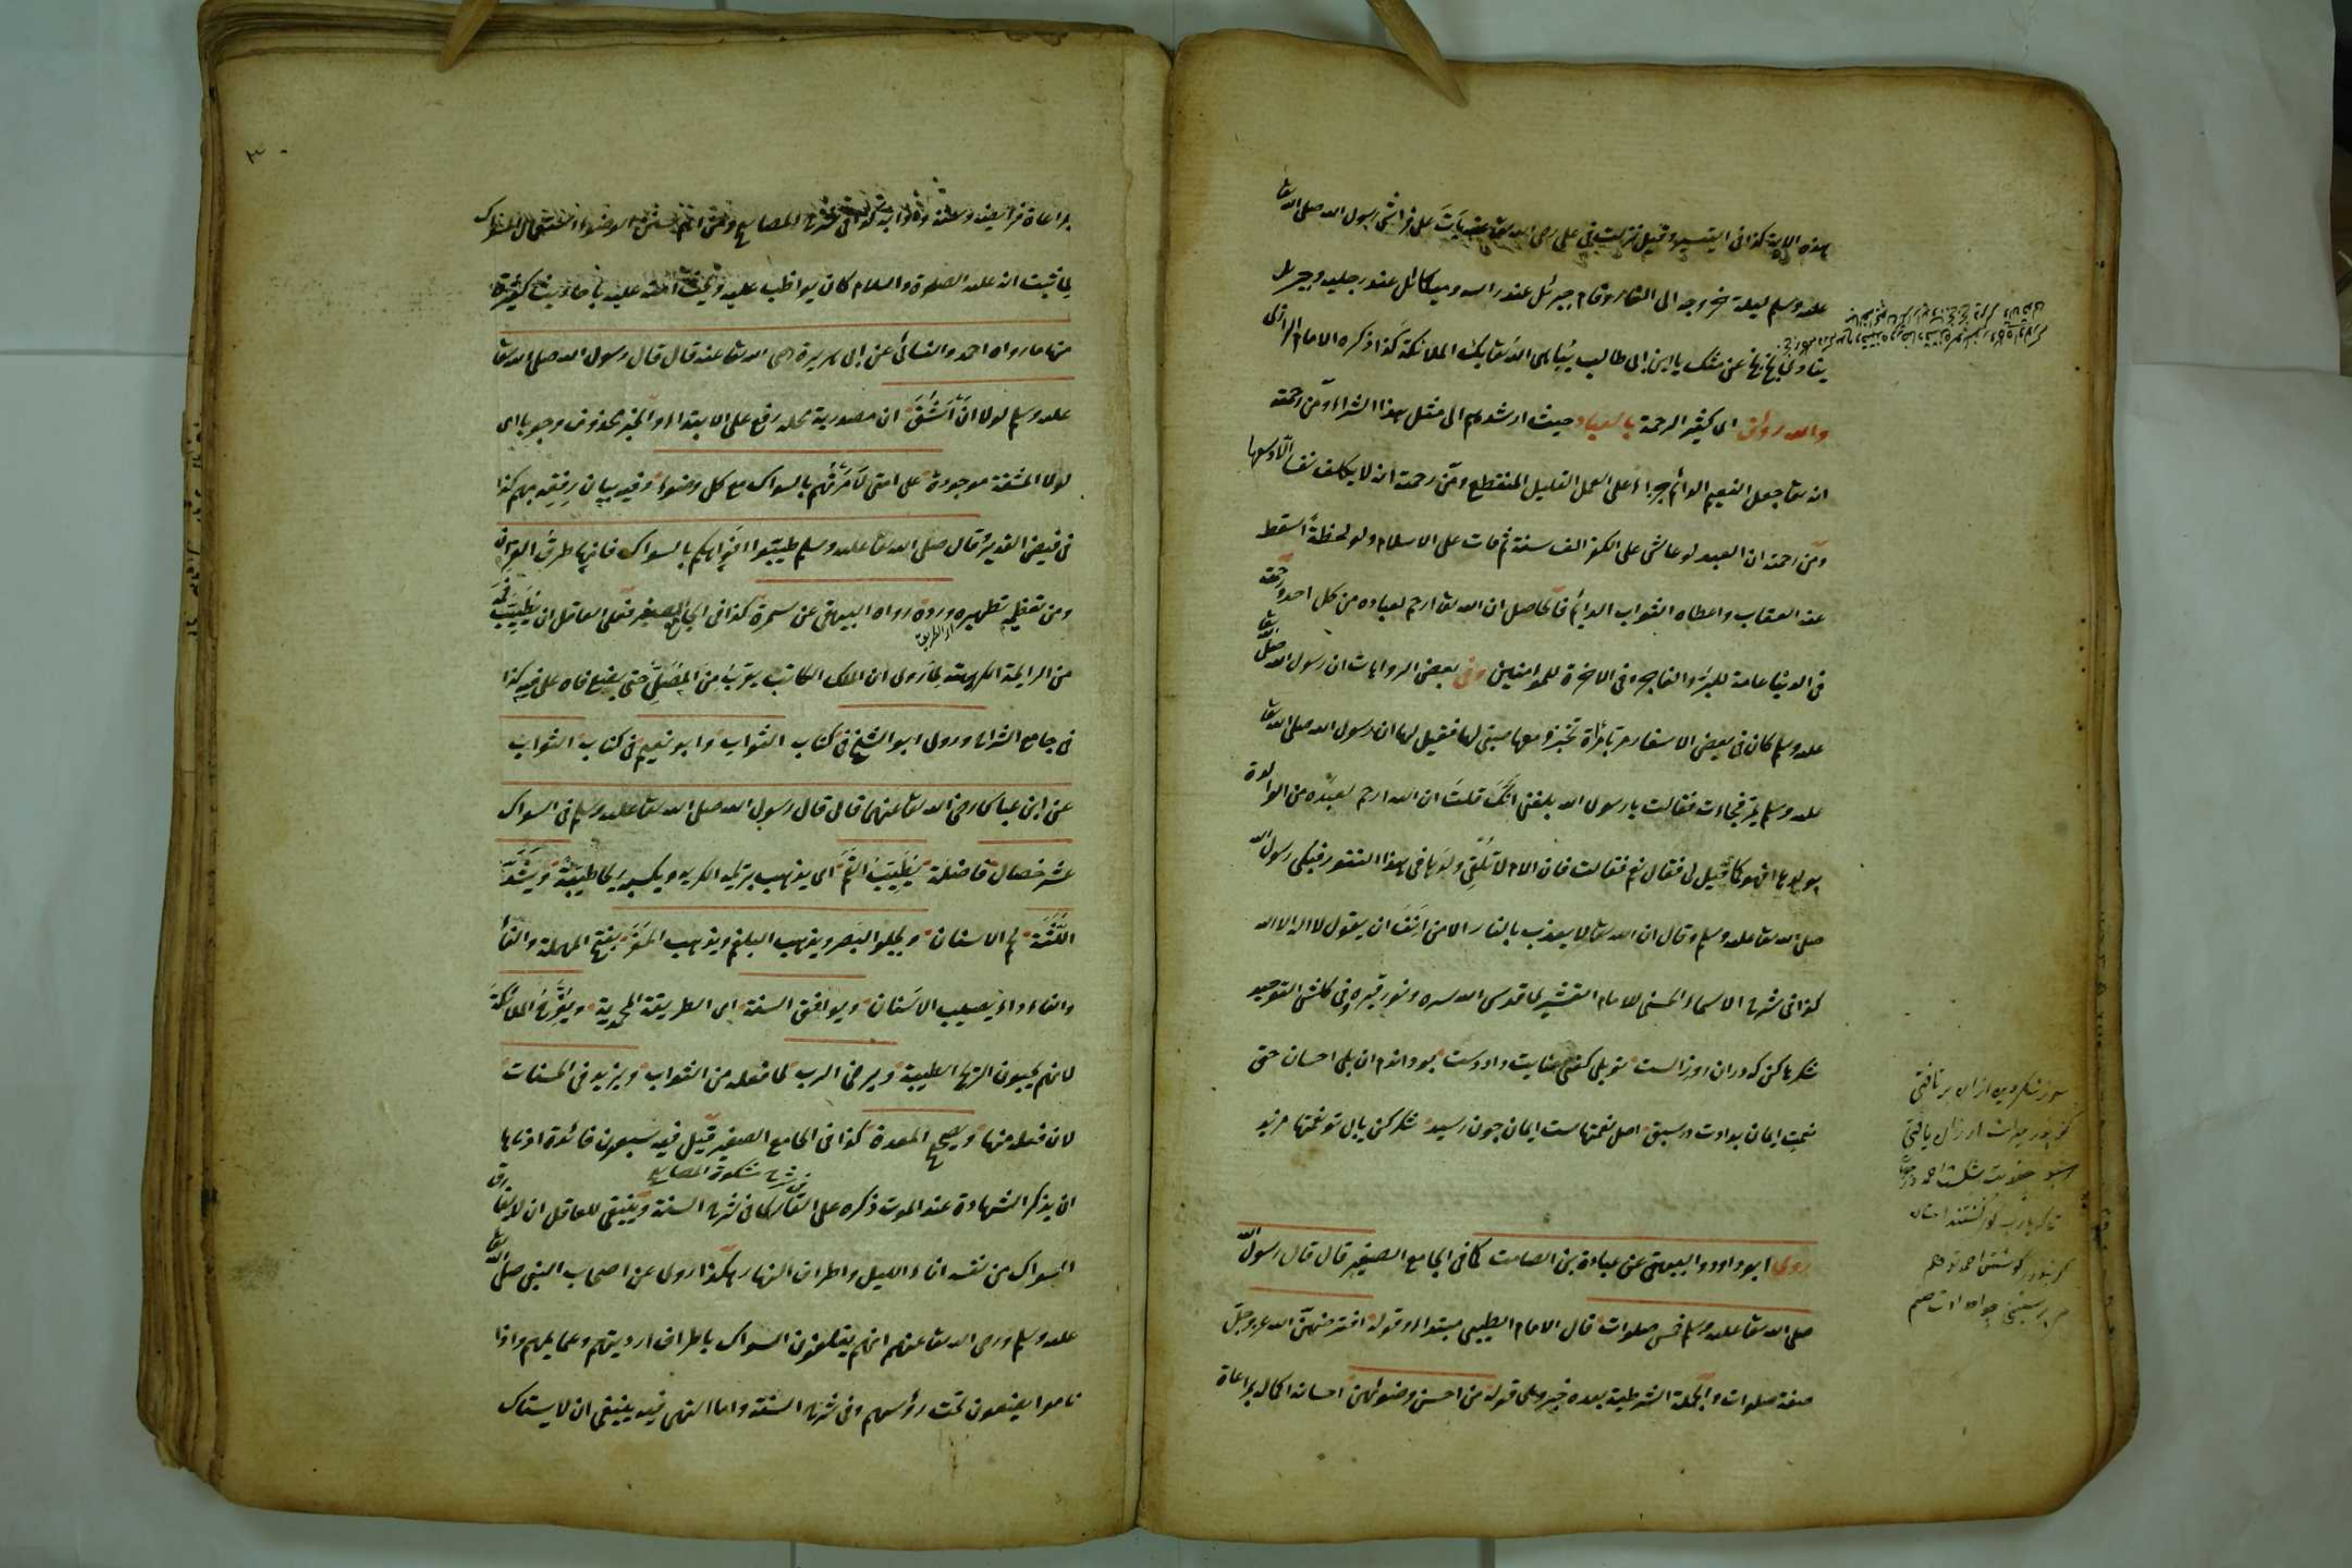 هذه الاية كذا فى التيسير وقيل نزلت فى على رضى الله تعا عنه بات على فراش رسول الله صلى الله تعا
عليه وسلم ليلة خروجه الى الغار وقام جبرئل عند راسه وميكائل عند رجليه وجبرئل
ينادى بخ بخ من مثلك يا ابن ابى طالب يباهى الله تعا بك الملائكة كذا ذكره الامام الرازى
والله رؤف اى كثير الرحمة بالعباد حيث ارشدهم الى مثل هذا الشراء ومن رحمته
انه تعا جعل النعيم الدائم جزاء على العمل القليل المنقطع ومن رحمته ان لا يكلف نفسا الا وسعها
ومن رحمته ان العبد لو عاش على الكفر الف سنة ثم مات على الاسلام ولو لحظة اسقط
عنه العقاب واعطاه الثواب الدائم فالحاصل ان الله تعا ارحم لعباده من كل احد ورحمته
فى الدنيا عامة للبر والفاجر وفى الاخرة للمؤمنين وفى بعض الروايات ان رسول الله صلى الله تعا
عليه وسلم كان فى بعض الاسفار مر بامرأة تخبز ومعها صبى لها فقيل لها ان رسول الله صلى الله تعا
عليه وسلم يمر فجاءت فقالت يا رسول الله بلغنى انك قلت ان الله ارحم لعبده من الوالدة
بولدها افهو كما قيل لى فقال نعم فقالت فان الام لا تلقى ولدها فى هذا التنور فبكى رسول الله
صلى الله تعا عليه وسلم وقال ان الله تعا لا يعذب بالنار الا من انف ان يقول لا اله الا الله
كذا فى شرح الاسماء الحسنى للامام القشيرى قدس الله سره ونور قبره وفى كلشن التوحيد
شكرها كن كه دران روز الست بلى كفتى داد دست بود انهم ان بلى احسان حق
نعمت ايمان بدادت در سبق اصل نعمتهاست ايمان چون رسيد شكر كن يابى تو نعمتها مزيد
روى ابو داود والبيهقى عن عبادة بن الصامت كما فى الجامع الصغير قال قال رسول الله
صلى الله تعا عليه وسلم خمس صلوات قال الامام الطيبى مبتداء وقوله افترضهن الله عز وجل
صفة صلوات والجملة الشرطية بعده خبر وهى قوله من احسن وضوئهن احسانه اكماله بمراعاة
بمراعاة فرايضه وسننه وادابه كذا فى شرح المصابيح ومن اتم سنن الوضوء استعمال السواك
لما ثبت انه عليه الصلوة والسلام كان يواظب عليه ويحث امته عليه باحاديث كثيرة
منها ما رواه احمد والنسائى عن ابى هريرة رضى الله تعا عنه قال قال رسول الله صلى الله تعا
عليه وسلم لولا ان اشق ان مصدرية محله رفع على الابتداء والخبر محذوف وجوبا اى
لولا المشقة موجودة على امتى لامرتهم بالسواك مع كل وضوء وفيه بيان رفقه بهم كذا
فى فيض القدير وقال صلى الله تعا عليه وسلم طيبوا افواهكم بالسواك فانها طرق القرآن
ومن تعظيمه تطهير ورده رواه البيهقى عن سمرة كذا فى الجامع الصغير فعلى العاقل ان يطيب فمه
من الرايحة الكريهة لما روى ان الملك الكاتب يقرب من المصلى حتى يضع فاه على فيه كذا
فى جامع الشرايع وروى ابو الشيخ فى كتاب الثواب وابو نعيم فى كتاب الثواب
عن ابن عباس رضى الله تعا عنهما قال قال رسول الله صلى الله تعا عليه وسلم فى السواك
عشر خصال فاضلة يطيب الفم اى يذهب بريحه الكريه ويكسبه ريحا طيبة ويشد
اللثة لحم الاسنان ويجلو البصر ويذهب البلغم ويذهب الحفر بفتح المهملة والفاء
والفاء داء يصيب الاسنان ويوافق السنة اى الطريقة المحمدية ويفرح الملائكة
لانهم يحبون الريح الطيبة ويرضى الرب لما فعله من الثواب ويزيد فى الحسنات
لان فعله منها ويصح المعدة كذا فى الجامع الصغير قيل فيه سبعون فائدة ادناها
فى شرح مشكوة المصابيح
ان يذكر الشهادة عند الموت ذكره على القارى كما فى شرح السنة وينبغى للعاقل ان لا يفارق
السواك من نفسه اناء الليل واطراف النهار هكذا روى عن اصحاب النبى صلى الله تعا
عليه وسلم ورضى الله تعا عنهم انهم يعلقون السواك باطراف ارديتهم وعمايمهم واذا
ناموا يضعون تحت رؤسهم وفى شرح السنة واما النهى فيه ينبغى ان لا يستاك